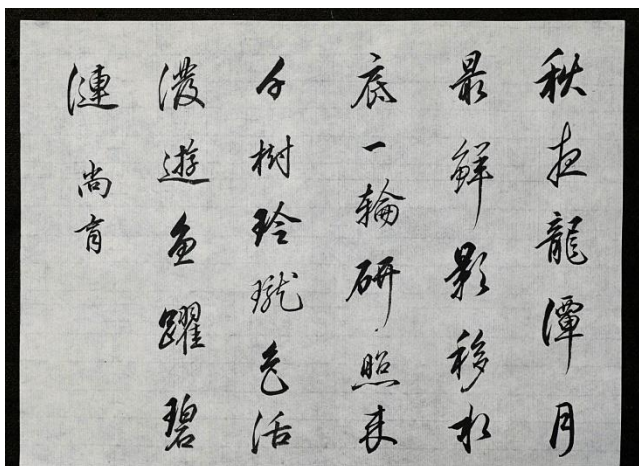 秋夜龍潭月
最鮮影移水
底一輪研照来
千樹玲瓏色活
潑遊魚躍碧
漣 尚育